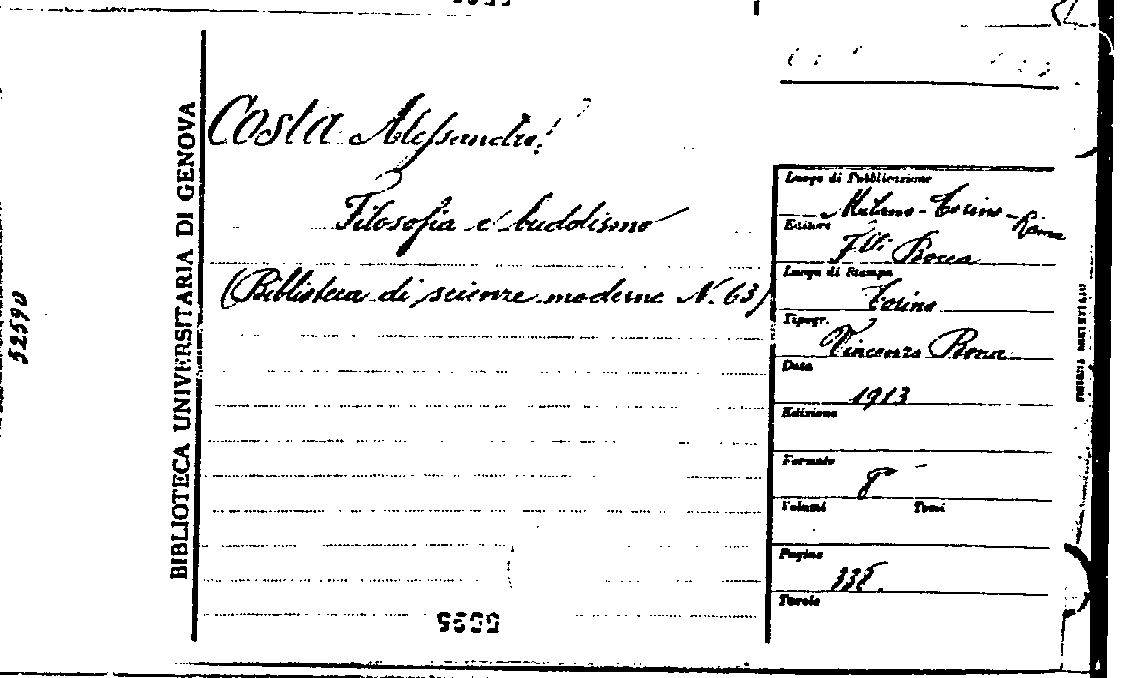 BIBLIOTECA UNIVERSITARIA DI GENOVA
52590
Costa Alessandro
Filosofia e buddismo
(Biblioteca di scienze moderne N. 63)
Luogo di Pubblicazione
Milano - Torino - Roma
Editore
F.lli Bocca
Luogo di Stampa
Torino
Tipogr.
Vincenzo Bona
Data
1913
Edizione
Formato
8°
Volumi Tomi
Pagine
Tavole